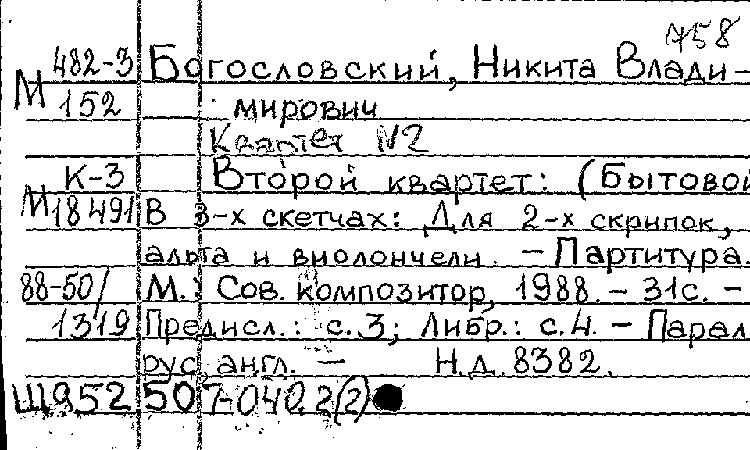 758
482-3 Богословский, Никита Влади-
М 152 мирович
Квартет N2
К-3 Второй квартет: (Бытовой
М18491 В 3-х скетчах: Для 2-х скрипок,
альта и виолончели. - Партитура.
88-50/ М.: Сов. композитор, 1988. - 31с. -
1319 Предисл.: с.3; Либр.: с.4. - Парал
рус. англ. - Н.д. 8382.
Щ952 507-040.2(2)